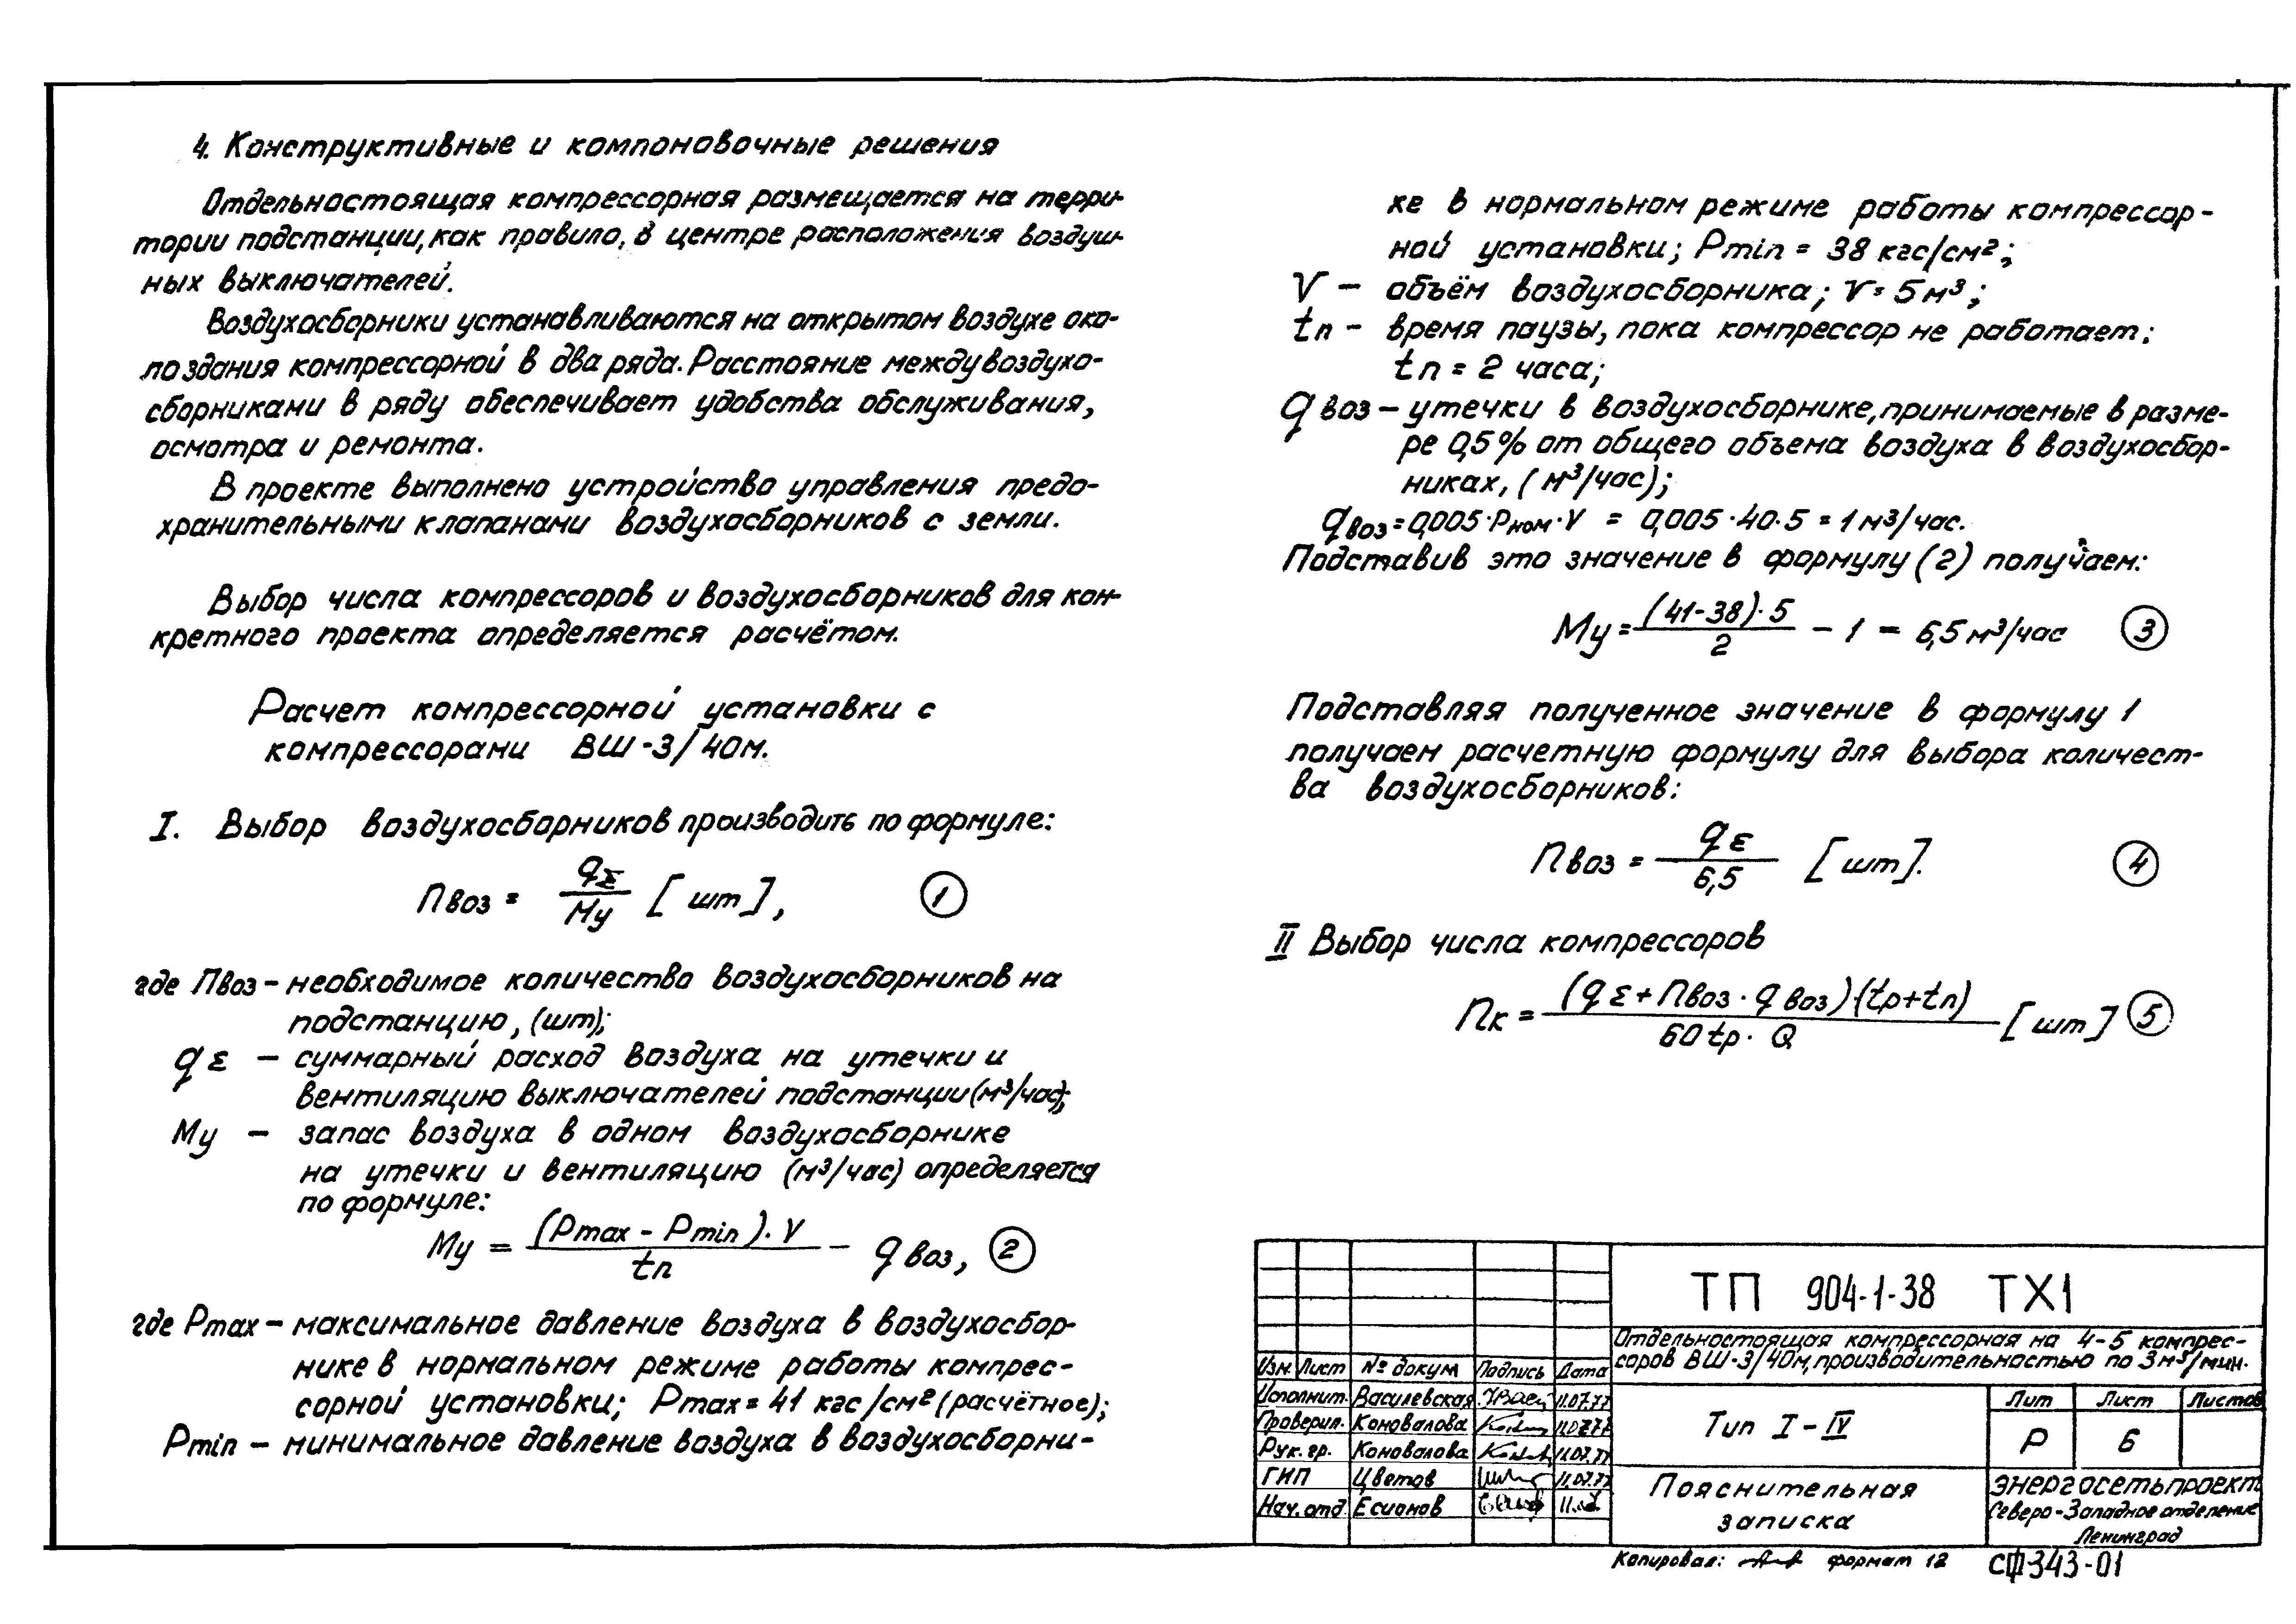 4. Конструктивные и компоновочные решения
Отдельностоящая компрессорная размещается на терри-
тории подстанции, как правило, в центре расположения воздуш-
ных выключателей.
Воздухосборники устанавливаются на открытом воздухе око-
ло здания компрессорной в два ряда. Расстояние между воздухо-
сборниками в ряду обеспечивает удобства обслуживания,
осмотра и ремонта.
В проекте выполнено устройство управления предо-
хранительными клапанами воздухосборников с земли.
Выбор числа компрессоров и воздухосборников для кон-
кретного проекта определяется расчётом.
Расчет компрессорной установки с
компрессорами ВШ-3/40м.
I. Выбор воздухосборников производить по формуле:
nвоз = qΣ / Му [шт], 1
где nвоз – необходимое количество воздухосборников на
подстанцию, (шт);
qΣ – суммарный расход воздуха на утечки и
вентиляцию выключателей подстанции (м³/час);
Му – запас воздуха в одном воздухосборнике
на утечки и вентиляцию (м³/час) определяется
по формуле:
Му = (Pmax - Pmin)·V / tп – qвоз, 2
где Pmax – максимальное давление воздуха в воздухосбор-
нике в нормальном режиме работы компрес-
сорной установки; Pmax = 41 кгс/см² (расчётное);
Pmin – минимальное давление воздуха в воздухосборни-
ке в нормальном режиме работы компрессор-
ной установки; Pmin = 38 кгс/см²;
V – объём воздухосборника; V = 5 м³;
tп – время паузы, пока компрессор не работает;
tп = 2 часа;
qвоз – утечки в воздухосборнике, принимаемые в разме-
ре 0,5% от общего объема воздуха в воздухосбор-
никах, (м³/час);
qвоз = 0,005·Pном·V = 0,005·40·5 = 1 м³/час.
Подставив это значение в формулу (2) получаем:
Му = (41-38)·5 / 2 – 1 = 6,5 м³/час 3
Подставляя полученное значение в формулу 1
получаем расчетную формулу для выбора количест-
ва воздухосборников:
nвоз = qΣ / 6,5 [шт]. 4
II Выбор числа компрессоров
nк = (qΣ + nвоз·qвоз)·(tр+tп) / 60 tр·Q [шт] 5
ТП 904-1-38 ТХ1
Отдельностоящая компрессорная на 4-5 компрес-
соров ВШ-3/40м, производительностью по 3 м³/мин.
Изм. Лист № докум Подпись Дата
Исполнит. Василевская 11.07.77
Проверил. Коновалова 11.07.77
Рук. гр. Коновалова 11.07.77
ГИП Цветов 11.07.77
Нач. отд Есионов
Тип I-IV
Лит Лист Листов
Р 6
Пояснительная
записка
ЭНЕРГОСЕТЬПРОЕКТ
Северо-Западное отделение
Ленинград
Копировал: формат 12 СФ343-01